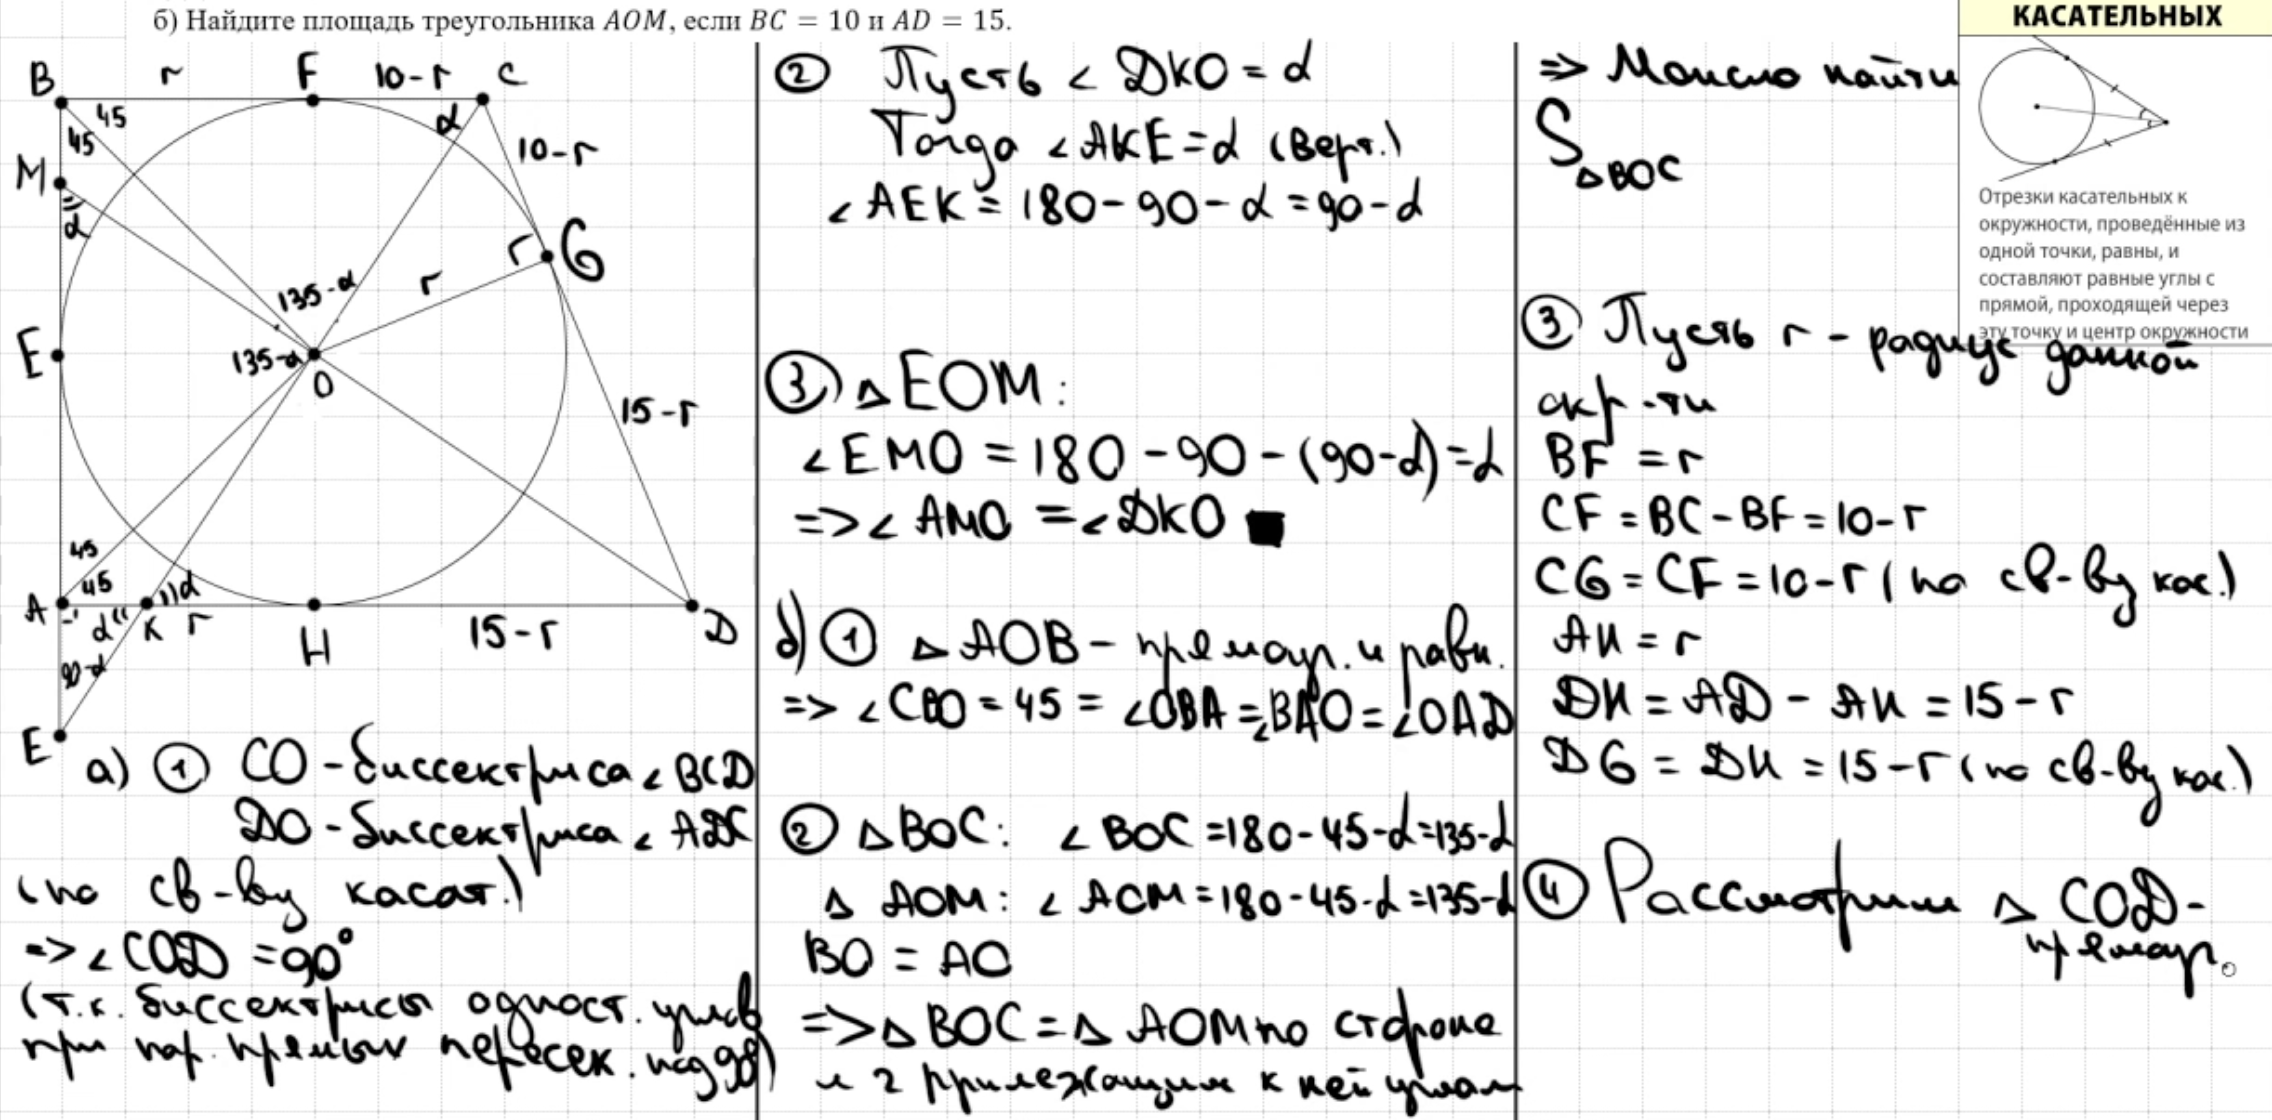 б) Найдите площадь треугольника AOM, если BC = 10 и AD = 15.
B r F 10-r C
45
45
α
10-r
M
α
r G
135-α
r
E
135-α
O
15-r
45
45
A
α K r
α
H
15-r
D
90-α
E
а) ① CO - биссектриса ∠ BCD
DO - биссектриса ∠ ADC
(по св-ву касат.)
=> ∠ COD = 90°
(т.к. биссектрисы одност. углов
при пар. прямых пересек. под 90°)
② Пусть ∠ DKO = α
Тогда ∠ AKE = α (верт.)
∠ AEK = 180 - 90 - α = 90 - α
③ △ EOM:
∠ EMO = 180 - 90 - (90-α) = α
=> ∠ AMO = ∠ DKO ■
б) ① △ AOB - прямоуг. и равн.
=> ∠ CBO = 45 = ∠OBA = ∠BAO = ∠OAD
② △ BOC: ∠ BOC = 180 - 45 - α = 135 - α
△ AOM: ∠ AOM = 180 - 45 - α = 135 - α
BO = AO
=> △ BOC = △ AOM по стороне
и 2 прилежащим к ней углам
=> Можно найти
S△BOC
③ Пусть r - радиус данной
окр-ти
BF = r
CF = BC - BF = 10 - r
CG = CF = 10 - r (по св-ву кас.)
AH = r
DH = AD - AH = 15 - r
DG = DH = 15 - r (по св-ву кас.)
④ Рассмотрим △ COD -
прямоуг.
КАСАТЕЛЬНЫХ
Отрезки касательных к
окружности, проведённые из
одной точки, равны, и
составляют равные углы с
прямой, проходящей через
эту точку и центр окружности